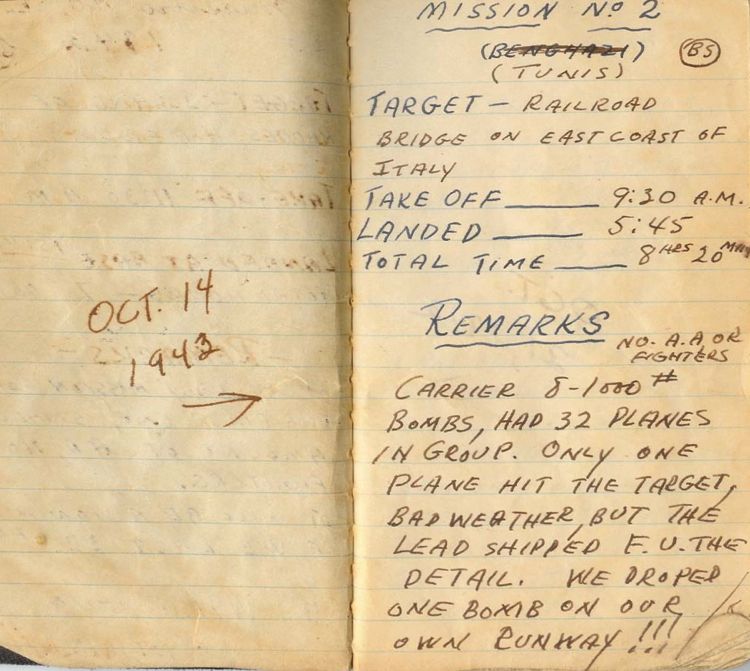 OCT. 14
1943
MISSION No 2
(BENGHAZI) (BS)
(TUNIS)
TARGET – RAILROAD
BRIDGE ON EAST COAST OF
ITALY
TAKE OFF ______ 9:30 A.M.
LANDED ______ 5:45
TOTAL TIME _____ 8 HRS 20 MIN
REMARKS
NO. A.A OR
FIGHTERS
CARRIER 8-1000 #
BOMBS, HAD 32 PLANES
IN GROUP. ONLY ONE
PLANE HIT THE TARGET,
BAD WEATHER, BUT THE
LEAD SHIPPED F.U. THE
DETAIL. WE DROPED
ONE BOMB ON OUR
OWN RUNWAY !!!